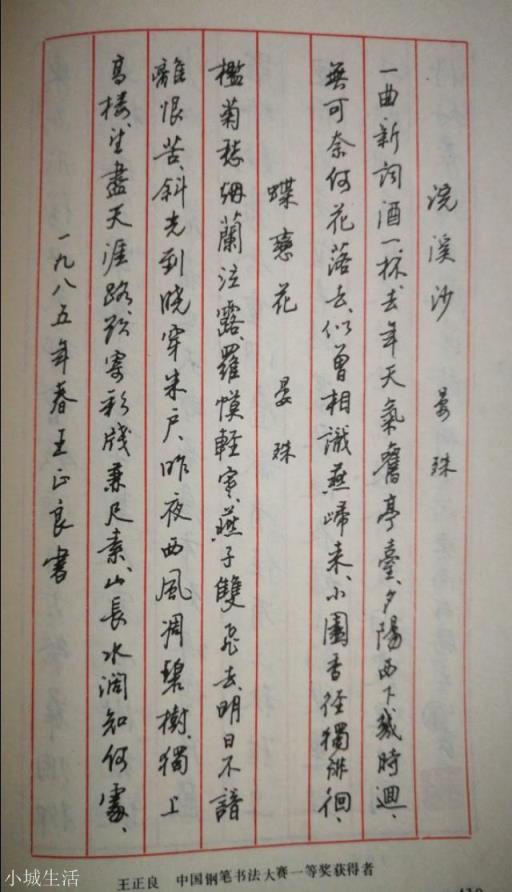 浣溪沙 晏殊
一曲新词酒一杯、去年天氣舊亭臺、夕陽西下幾時迴、
無可奈何花落去、似曾相識燕歸来、小園香徑獨徘徊、
蝶戀花 晏殊
檻菊愁烟蘭泣露、羅幙輕寒、燕子雙飛去、明日不諳
離恨苦、斜光到曉穿朱户、昨夜西風凋碧樹、獨上
高楼、望盡天涯路、欲寄彩牋兼尺素、山長水濶知何處、
一九八五年春王正良書
王正良 中国钢笔书法大赛一等奖获得者
小城生活